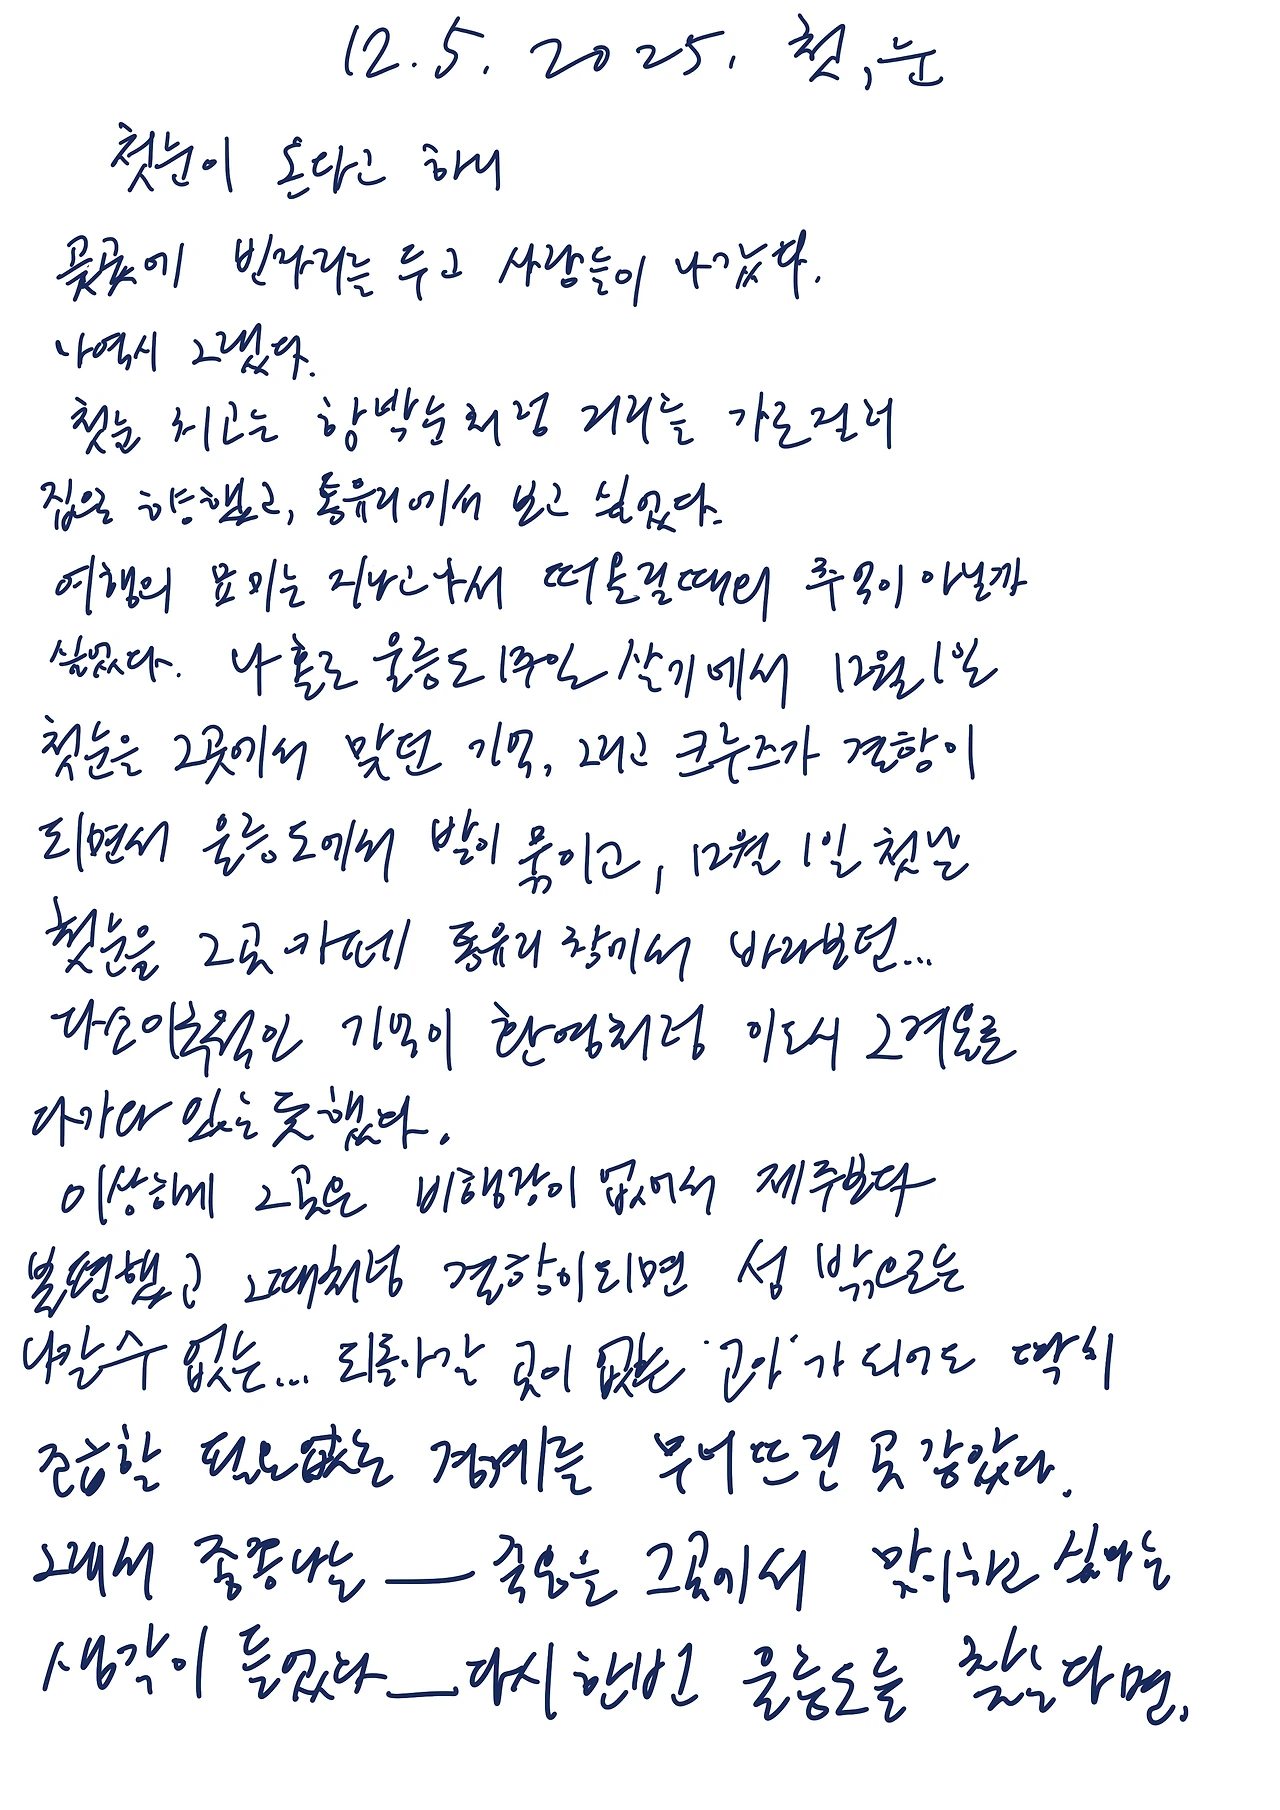 12.5. 2025. 첫, 눈
첫눈이 온다고 하니
곳곳에 빈자리를 두고 사람들이 나갔다.
나 역시 그랬다.
첫눈 치고는 함박눈처럼 거리를 가로질러
집을 향했고, 통유리에서 보고 싶었다.
여행의 묘미는 지나고나서 떠올릴때의 추억이 아닐까
싶었다. 나 홀로 울릉도 1주일 살기에서 12월 1일
첫눈은 그곳에서 맞던 기억, 그리고 크루즈가 결항이
되면서 울릉도에서 발이 묶이고, 12월 1일 첫날
첫눈을 그곳 카페 통유리 창가에서 바라보던...
다소 이국적인 기억이 환영처럼 이도시 그겨울로
다가와 있는 듯 했다.
이상하게 그곳은 비행장이 없어서 제주보다
불편했고 그때처럼 결항이되면 섬 밖으로는
나갈수 없는... 되돌아갈 곳이 없는 '고아'가 되어도 딱히
조급할 필요없는 경계를 무너뜨린 곳 같았다.
그래서 종종 나는 — 죽음을 그곳에서 맞이하고 싶다는
생각이 들었다 — 다시 한번 울릉도를 찾는다면,